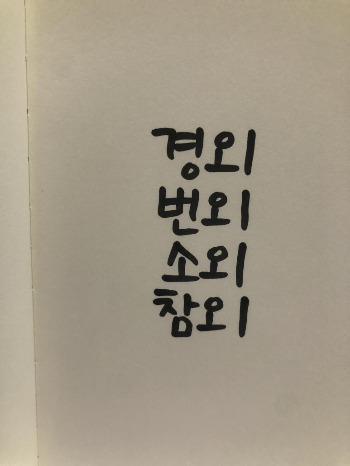 경외
번외
소외
참외